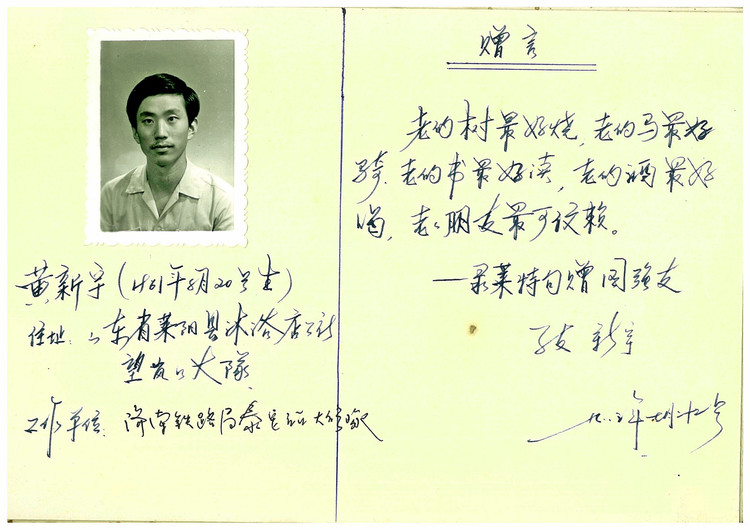 黄新宇(1961年8月20号生)
住址:山东省莱阳县沐浴店公社
望岚口大隊
工作单位:济南铁路局泰 大修隊
赠言
老的树最好烧,老的马最好
骑.老的书最好读,老的酒最好
喝,老的朋友最可信赖。
—录莱特句赠国强友
学友 新宇
一九八三年七月二十二号